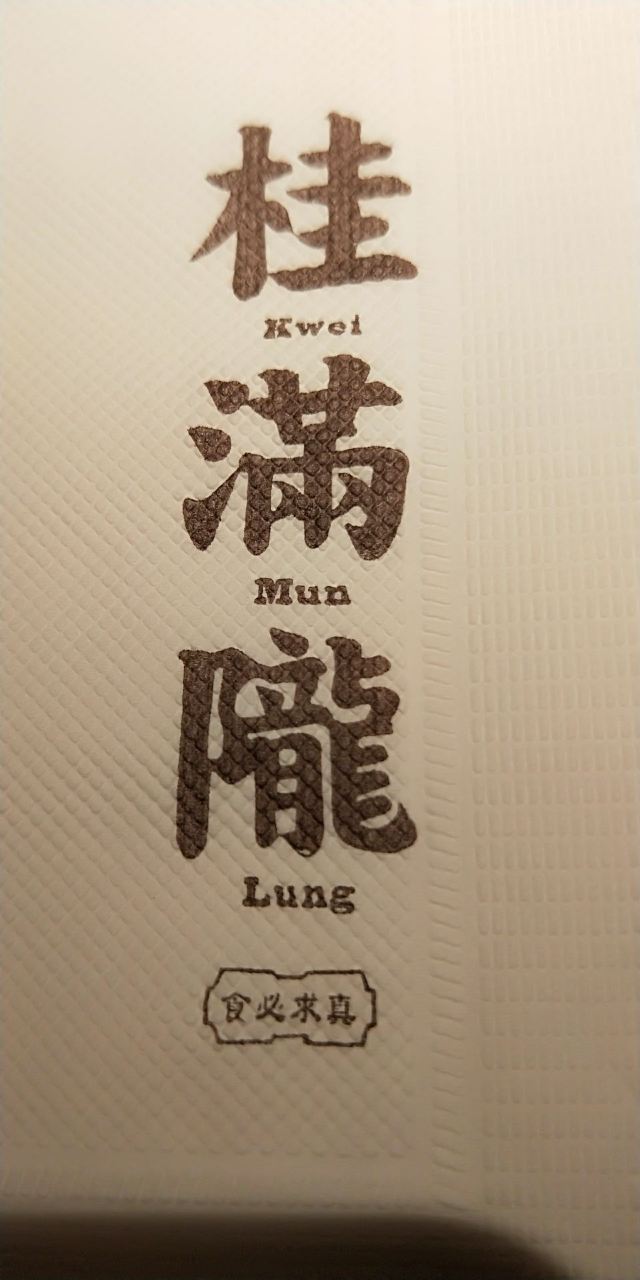 桂
Kwei
滿
Mun
隴
Lung
食必求真